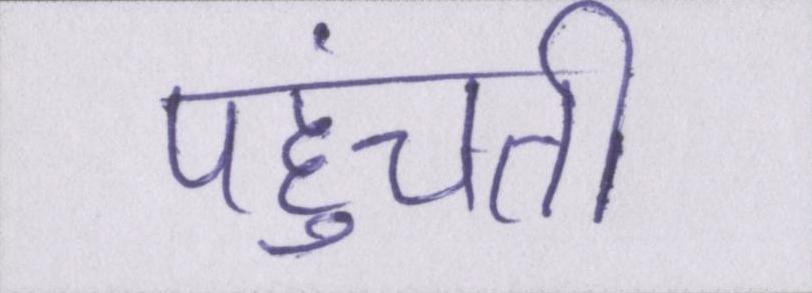 पहुंचती